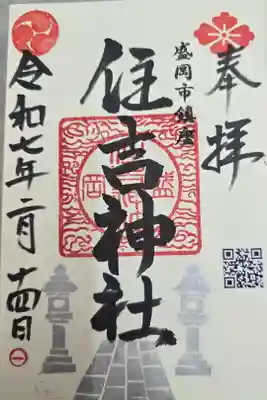 奉拝
盛岡市鎮座
住吉神社
令和七年二月十四日